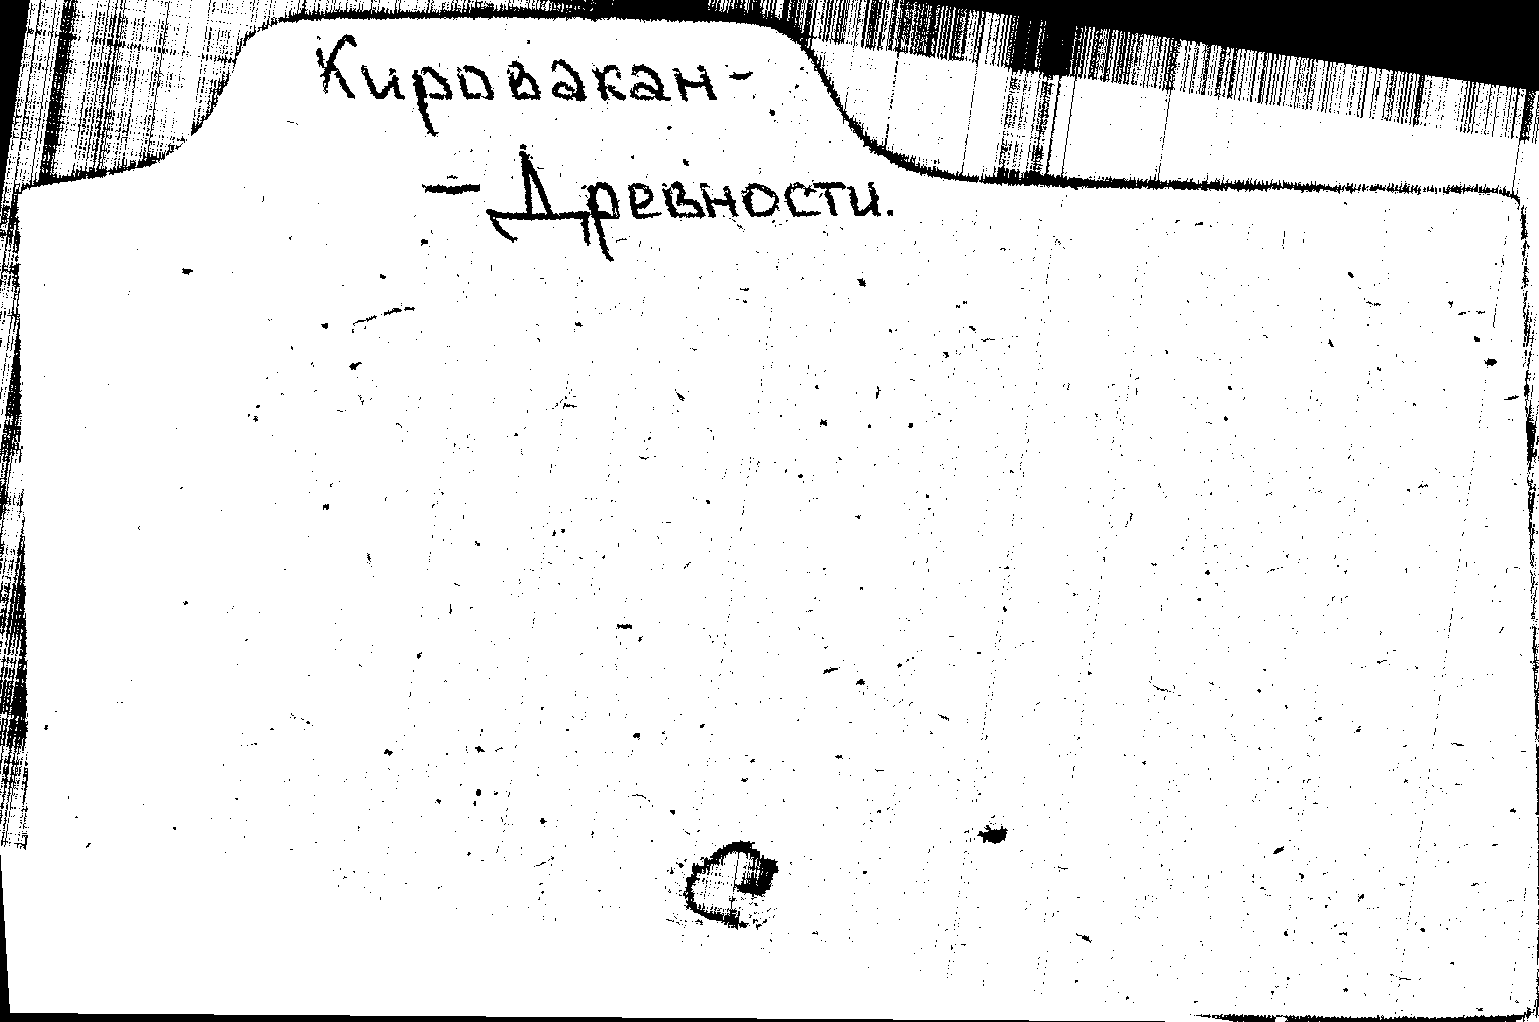 Кировакан-
- Древности.